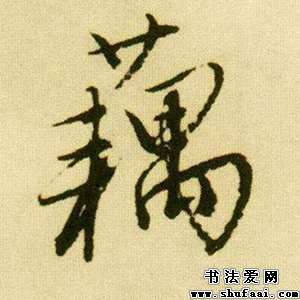 藕
书法爱网
www.shufaai.com